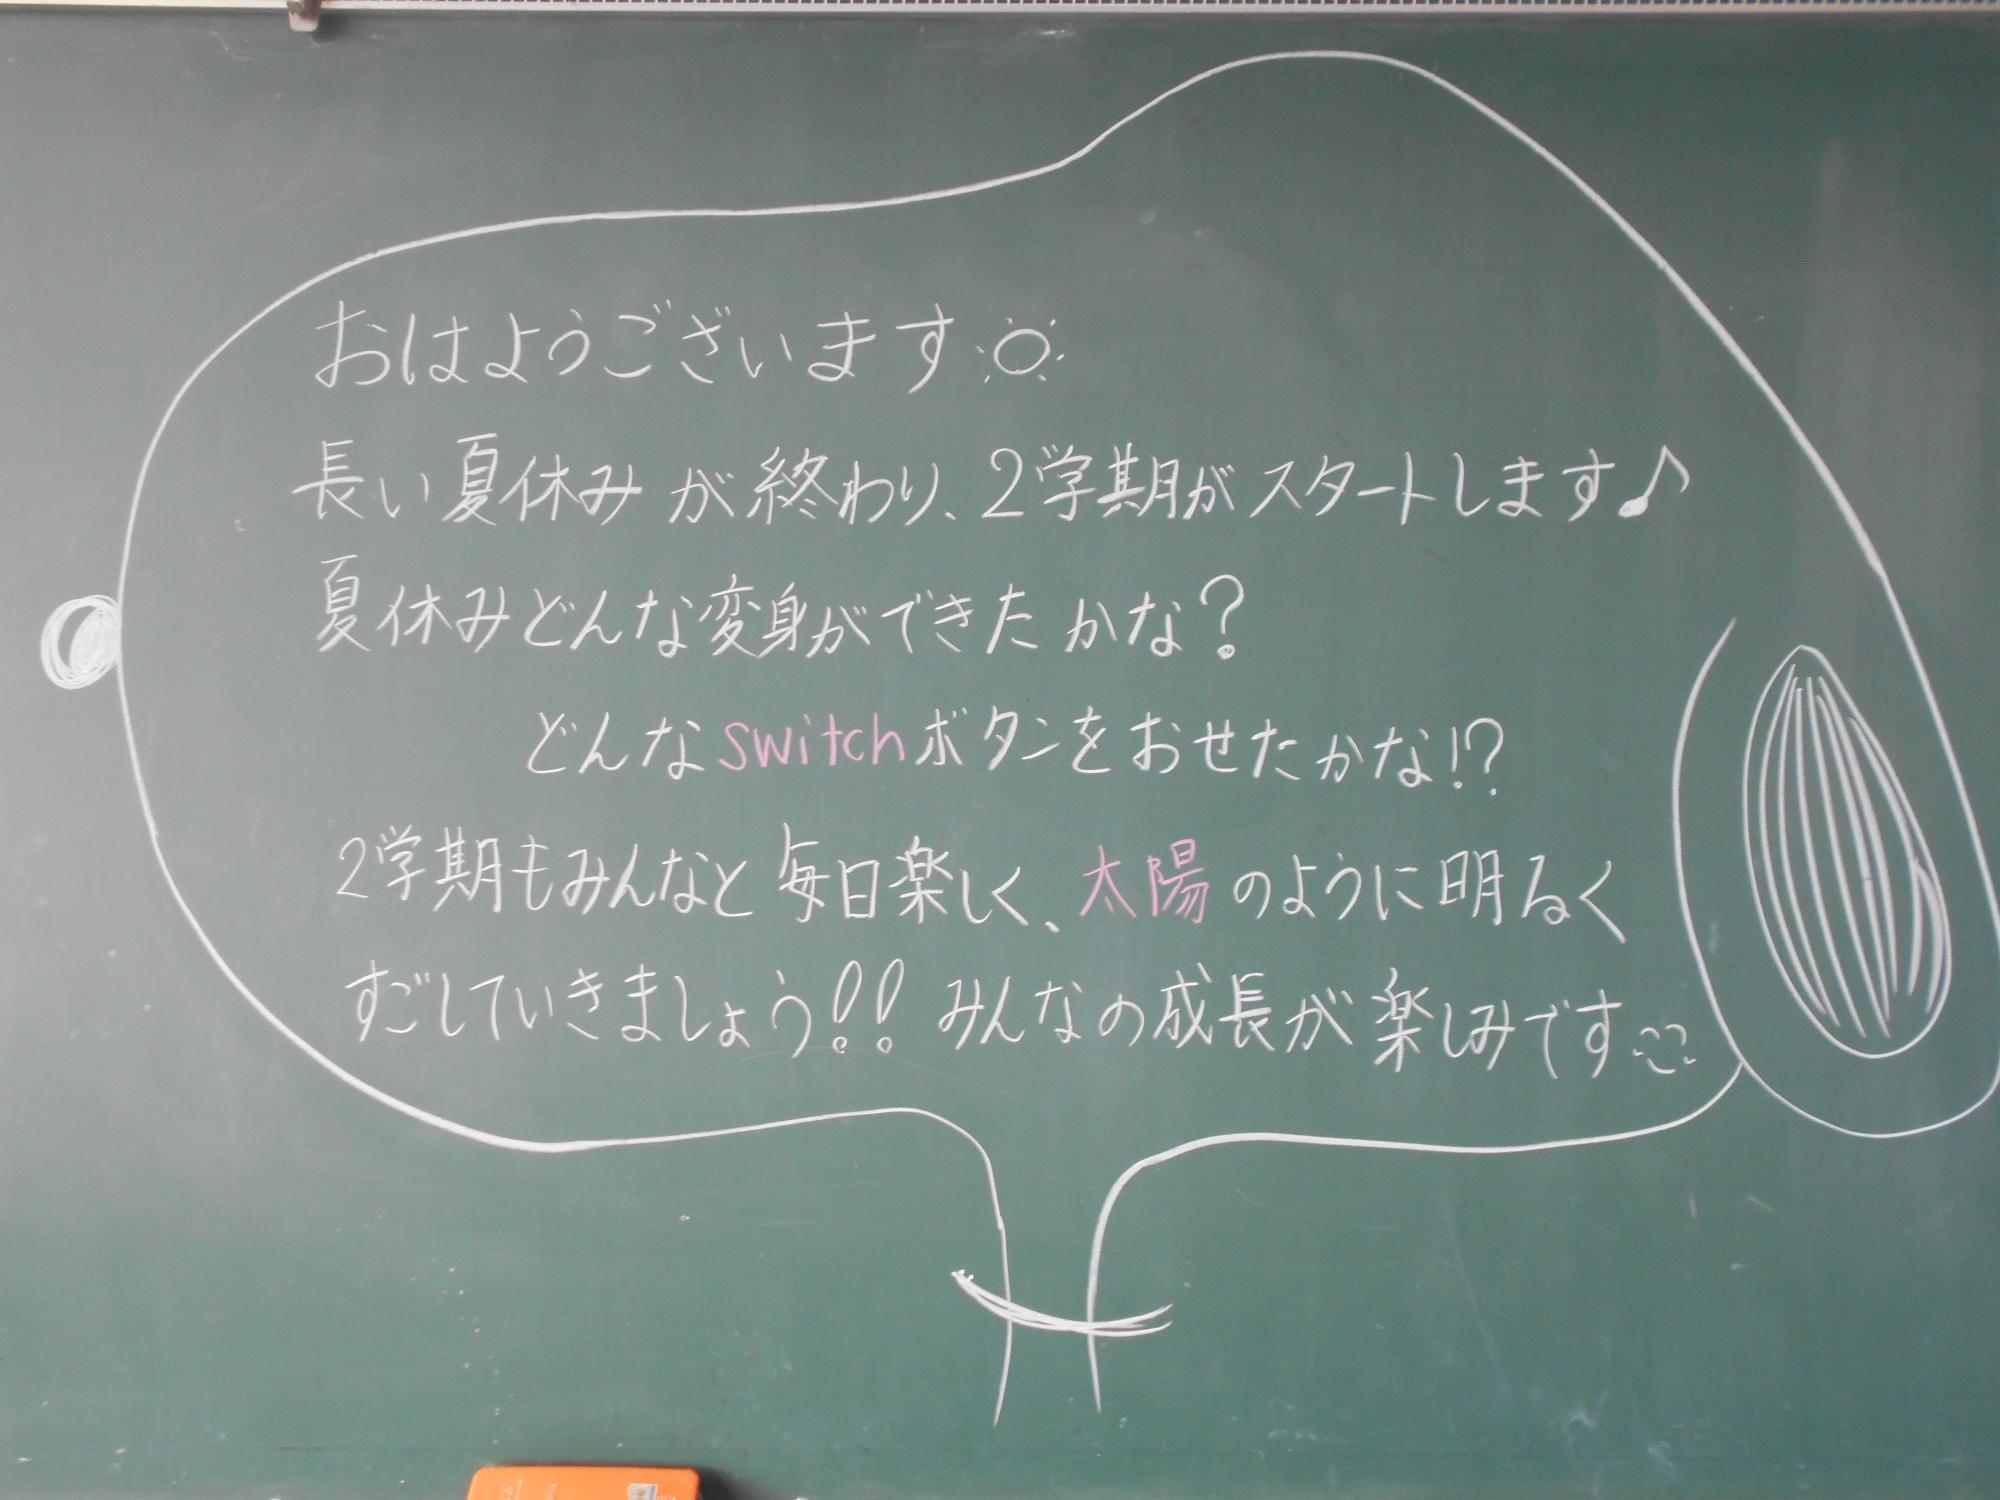 おはようございます
長い夏休みが終わり、2学期がスタートします♪
夏休みどんな変身ができたかな?
どんなswitchボタンをおせたかな!?
2学期もみんなと毎日楽しく、太陽のように明るく
すごしていきましょう!! みんなの成長が楽しみです